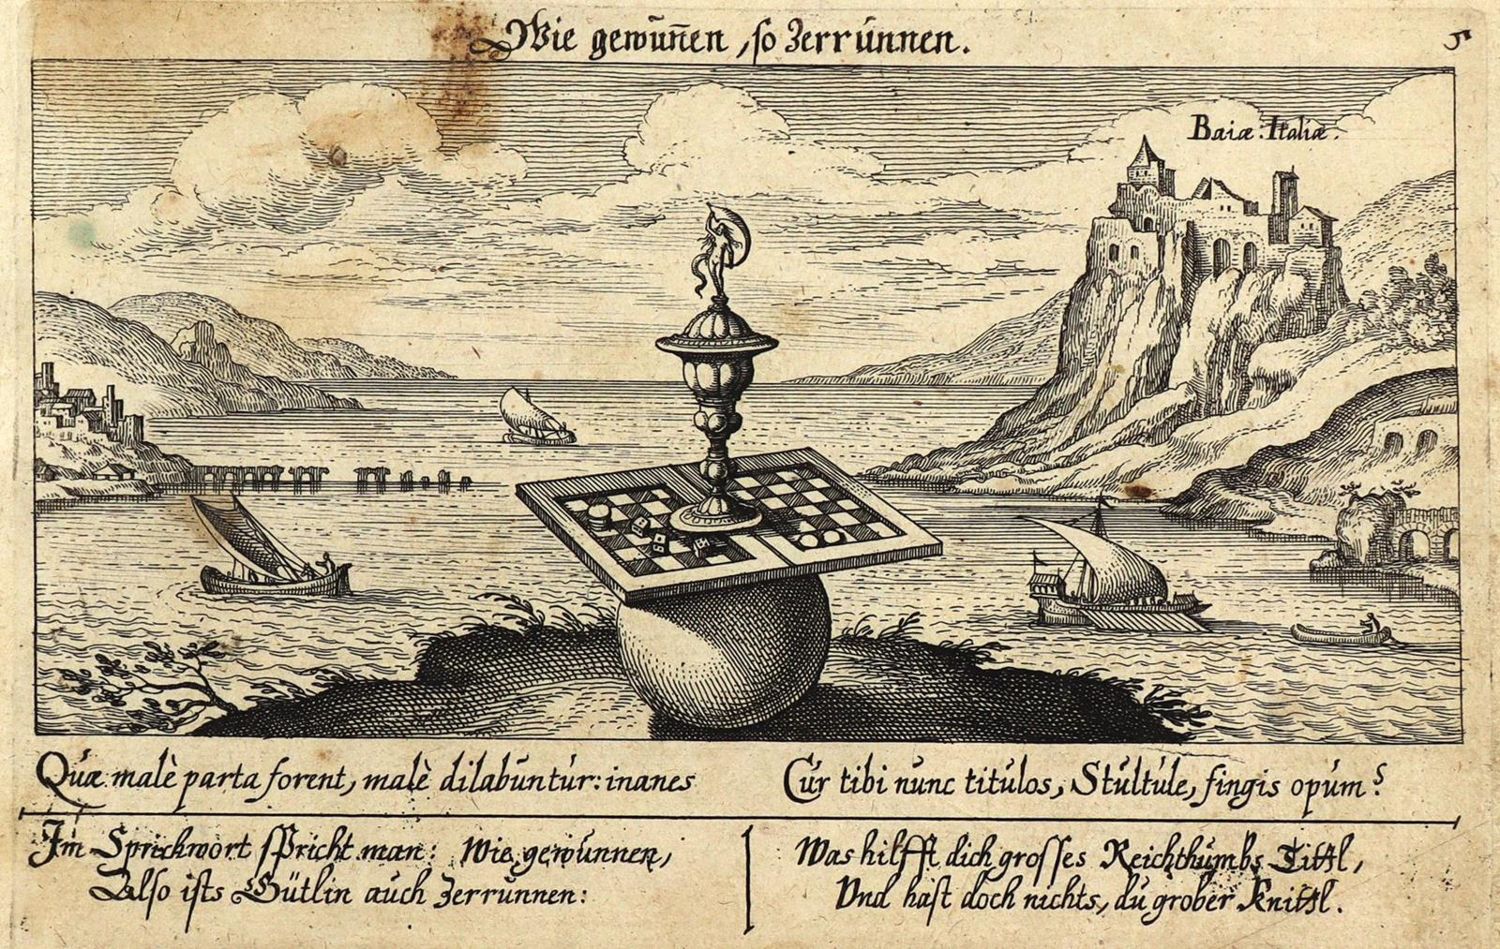 Wie gewuñen, so Zerrunnen.
5
Baiæ: Italiæ.
Quæ malè parta forent, malè dilabuntur: inanes
Cur tibi nunc titulos, Stultule, fingis opum?
Im Sprichwort spricht man: Wie gewunnen,
Also ists Gütlin auch Zerrunnen:
Was hilfft dich grosses Reichthumbs Tittl,
Und hast doch nichts, du grober Knittl.